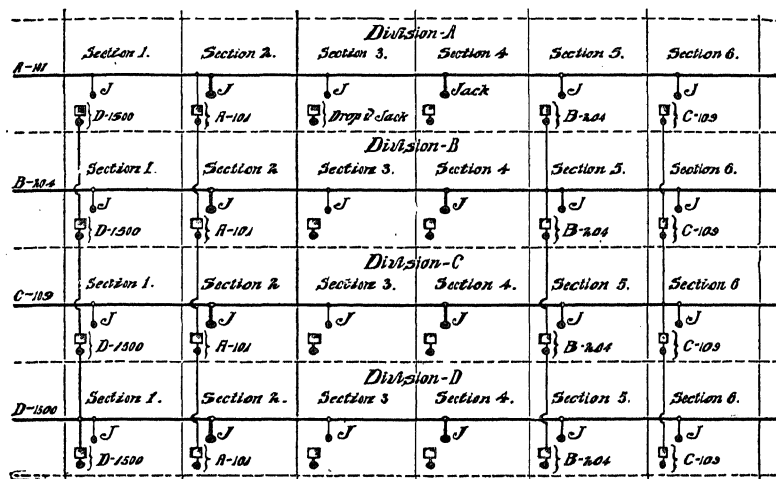 Division-A
Section 1. Section 2. Section 3. Section 4 Section 5. Section 6.
A-101
J J J Jack J J
D-1500 A-101 Drop & Jack B-204 C-109
Division-B
Section 1. Section 2 Section 3. Section 4 Section 5. Section 6.
B-204
J J J J J J
D-1500 A-101 B-204 C-109
Division-C
Section 1. Section 2 Section 3. Section 4. Section 5. Section 6
C-109
J J J J J J
D-1500 A-101 B-204 C-109
Division-D
Section 1. Section 2. Section 3 Section 4. Section 5. Section 6.
D-1500
J J J J J J
D-1500 A-101 B-204 C-109